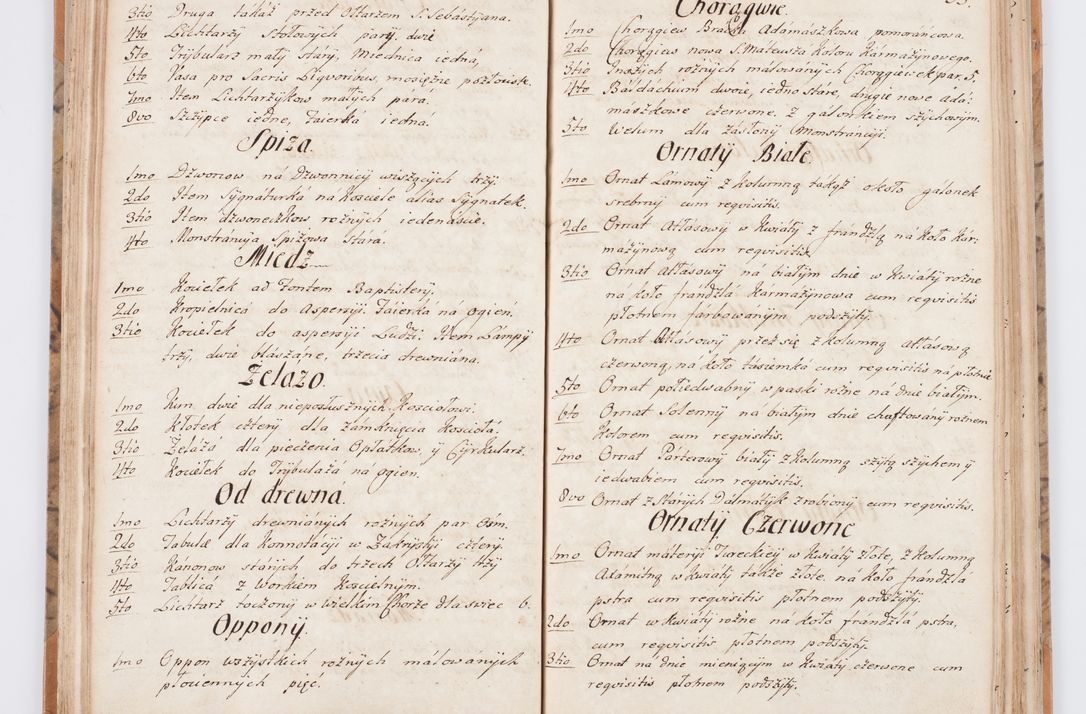 3tio Druga takaż przed Ołtarzem S. Sebastyana.
4to Lichtarzy Stołowych pary dwie
5to Trybularz mały stary, Miednica iedna,
6to Vasa pro Sacris Liqvoribus, mosiężne pozłociste.
7mo Item Lichtarzykow małych para.
8vo Szczypce iedne, Faierka iedna.
Spiza.
1mo Dzwonow na Dzwonnicy wiszących trzy.
2do Item Sygnaturka na Kosciele alias Sygnatek.
3tio Item dzwoneczkow rożnych iedenaście.
4to Monstrancyia Spiżowa stara.
Miedz
1mo Kociełek ad Fontem Baptistery.
2do Kropielnica do Aspersyi. Faierka na ogien.
3tio Kociełek do aspersyi Ludzi. Item Lampy
trzy, dwie blaszane, trzecia drewniana.
Żelazo.
1mo Kun dwie dla nieposłusznych Kosciołowi.
2do Kłotek cztery dla zamknięcia Kościoła.
3tio Żelaza dla pieczenia Opłatkow y Cyrkularz.
4to Kociełek do Trybulaża na ogien.
Od drewna.
1mo Lichtarzy drewnianych rożnych par Osm.
2do Tabulæ dla Konnotacyi w Zakrystyi cztery.
3tio Kanonow starych do trzech Ołtarzy trzy
4to Tablica z Workiem Koscielnym.
5to Lichtarz toczony w wielkim Chorze dla swiec 6.
Oppony.
1mo Oppon wszystkich rożnych malowanych
płociennych pięć.
Chorągwie.
1mo Chorągiew Bracka Adamaszkowa pomarańcowa.
2do Chorągiew nowa S. Mateusza Koloru Karmazynowego.
3tio Inszych rożnych malowanych Chorągwiek par. 5.
4to Baldachium dwoie, iedno stare, drugie nowe ada:
maszkowe czerwone, z galonkiem szychowym.
5to Welum dla zasłony Monstrancyi.
Ornaty Białe.
1mo Ornat Lamowy z kolumną takąż około galonek
srebrny cum reqvisitis.
2do Ornat Atłasowy w kwiaty z frandzlą na koło kar:
mazynową cum reqvisitis.
3tio Ornat Atłasowy na białym dnie w kwiaty rożne
na koło frandzla karmazynowa cum reqvisitis
płotnem farbowanym podszyty.
4to Ornat Atłasowy przez się z kolumną atłasową
czerwoną, na koło tasiemka cum reqvisitis na płotnie
5to Ornat połiedwabny w paski rożne na dnie białym.
6to Ornat Solenny na białym dnie chaftowany rożnem
kolorem cum reqvisitis.
7mo Ornat Parterowy biały z kolumną szytą szychem y
iedwabiem cum reqvisitis.
8vo Ornat z starych Dalmatyk zrobiony cum reqvisitis.
Ornaty Czerwone
1mo Ornat materyi Tureckiey w kwiaty złote, z kolumną
Axamitną w kwiaty także złote, na koło frandzla
pstra cum reqvisitis płotnem podszyty.
2do Ornat w kwiaty rożne na koło frandzla pstra,
cum reqvisitis płotnem podszyty.
3tio Ornat na dnie mieniącym w kwiaty czerwone cum
reqvisitis płotnem podszyty.